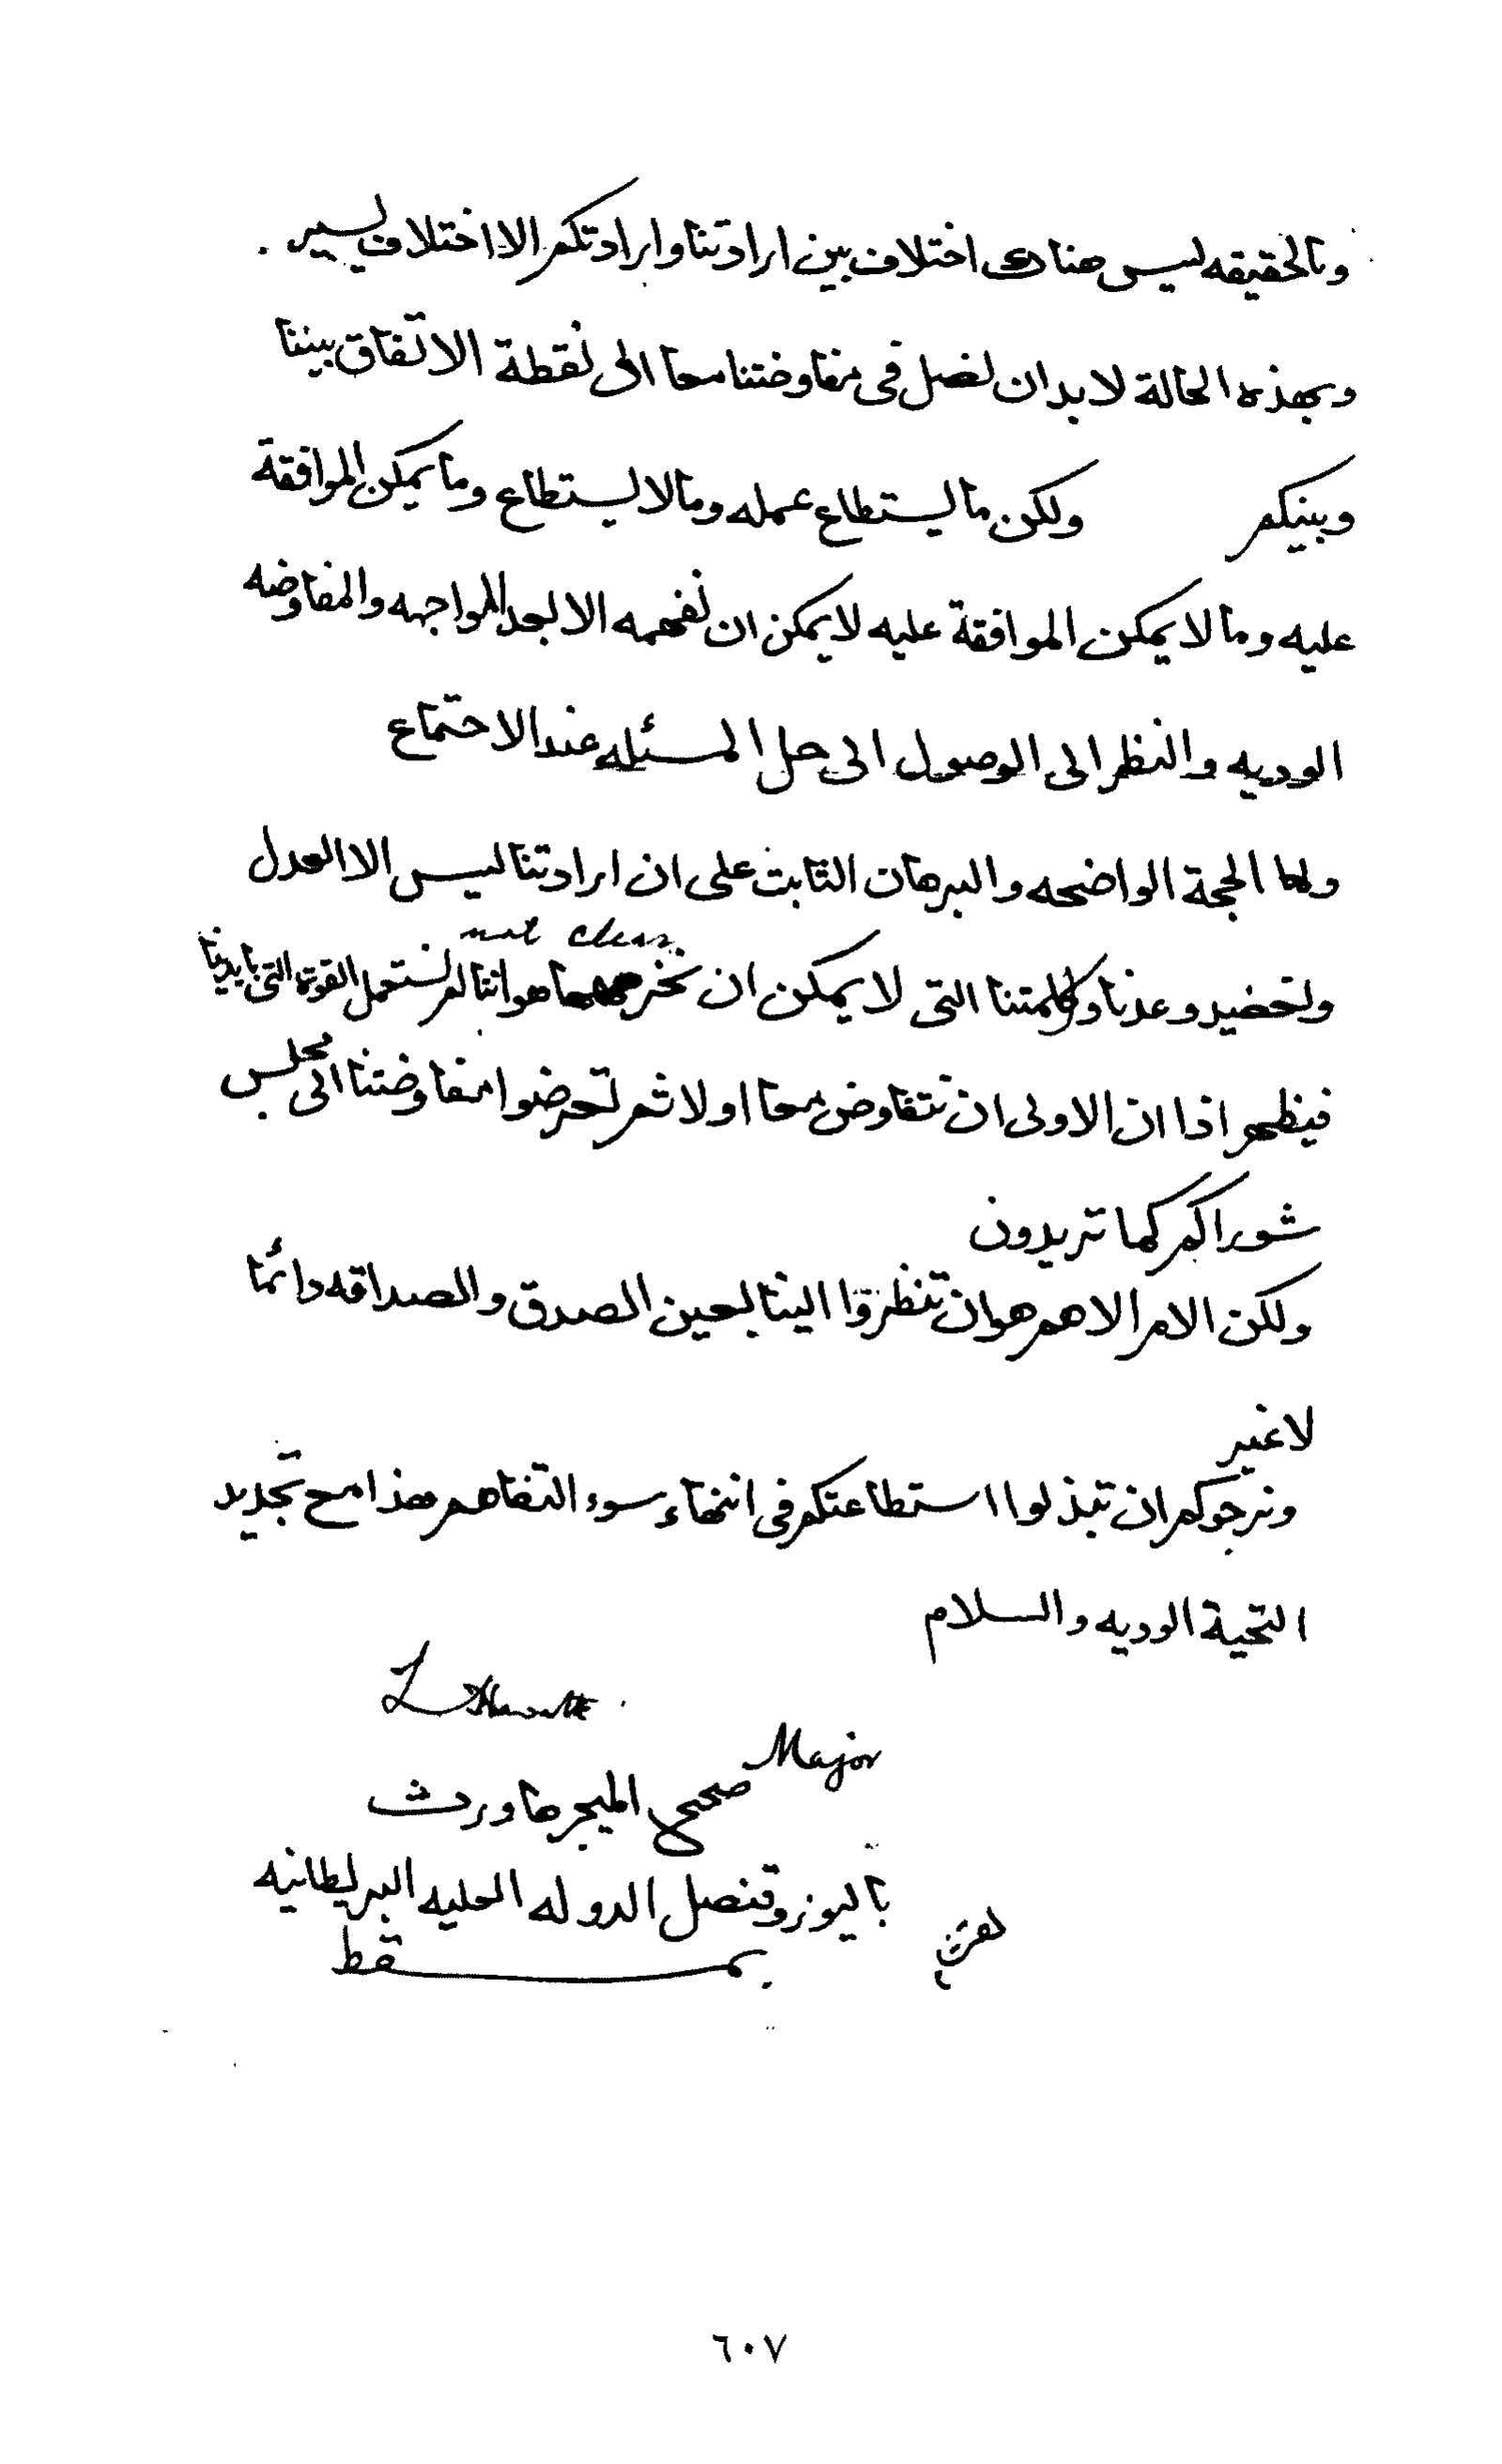 وبالحقيقه ليس هناك اختلاف بين ارادتنا وارادتكم الا اختلاف يسير .
وبهذه الحالة لا بد ان نصل فى مفاوضتنا معا الى نقطة الاتفاق بيننا
وبينكم ولكن ما يستطاع عمله وما لا يستطاع وما يمكن الموافقة
عليه وما لا يمكن الموافقة عليه لا يمكن ان نفهمه الا بعد المواجهه والمفاوضه
الوديه والنظر الى الوصول الى حل المسئله عند الاجتماع
ولها الحجة الواضحه والبرهان الثابت على ان ارادتنا ليس الا العدل
not clear
ولتعضيد وعدنا وكلمتنا التى لا يمكن ان هو اننا لم نستعمل القوة التى بايدينا
فيظهر اذا ان الاولى ان نتفاوض معا اولا ثم تعرضوا مفاوضتنا الى مجلس
شوراكم كما تريدون
ولكن الامر الاهم هو ان تنظروا الينا بعين الصدق والصداقه دائما
لا غير
ونرجوكم ان تبذلوا استطاعتكم فى انتهاء سوء التفاهم هذا مع تجديد
التحية الوديه والسلام
Major
صحيح الميجر هاورث
باليوز وقنصل الدوله العليه البريطانيه
بمسقط
٦٠٧